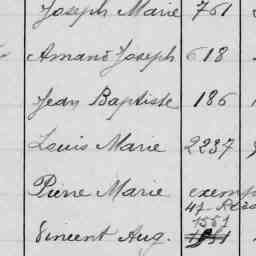 Joseph Marie 761
Amand Joseph 618
Jean Baptiste 186
Louis Marie 2237
Pierre Marie exemp
41 Rés
1551
Vincent Aug.